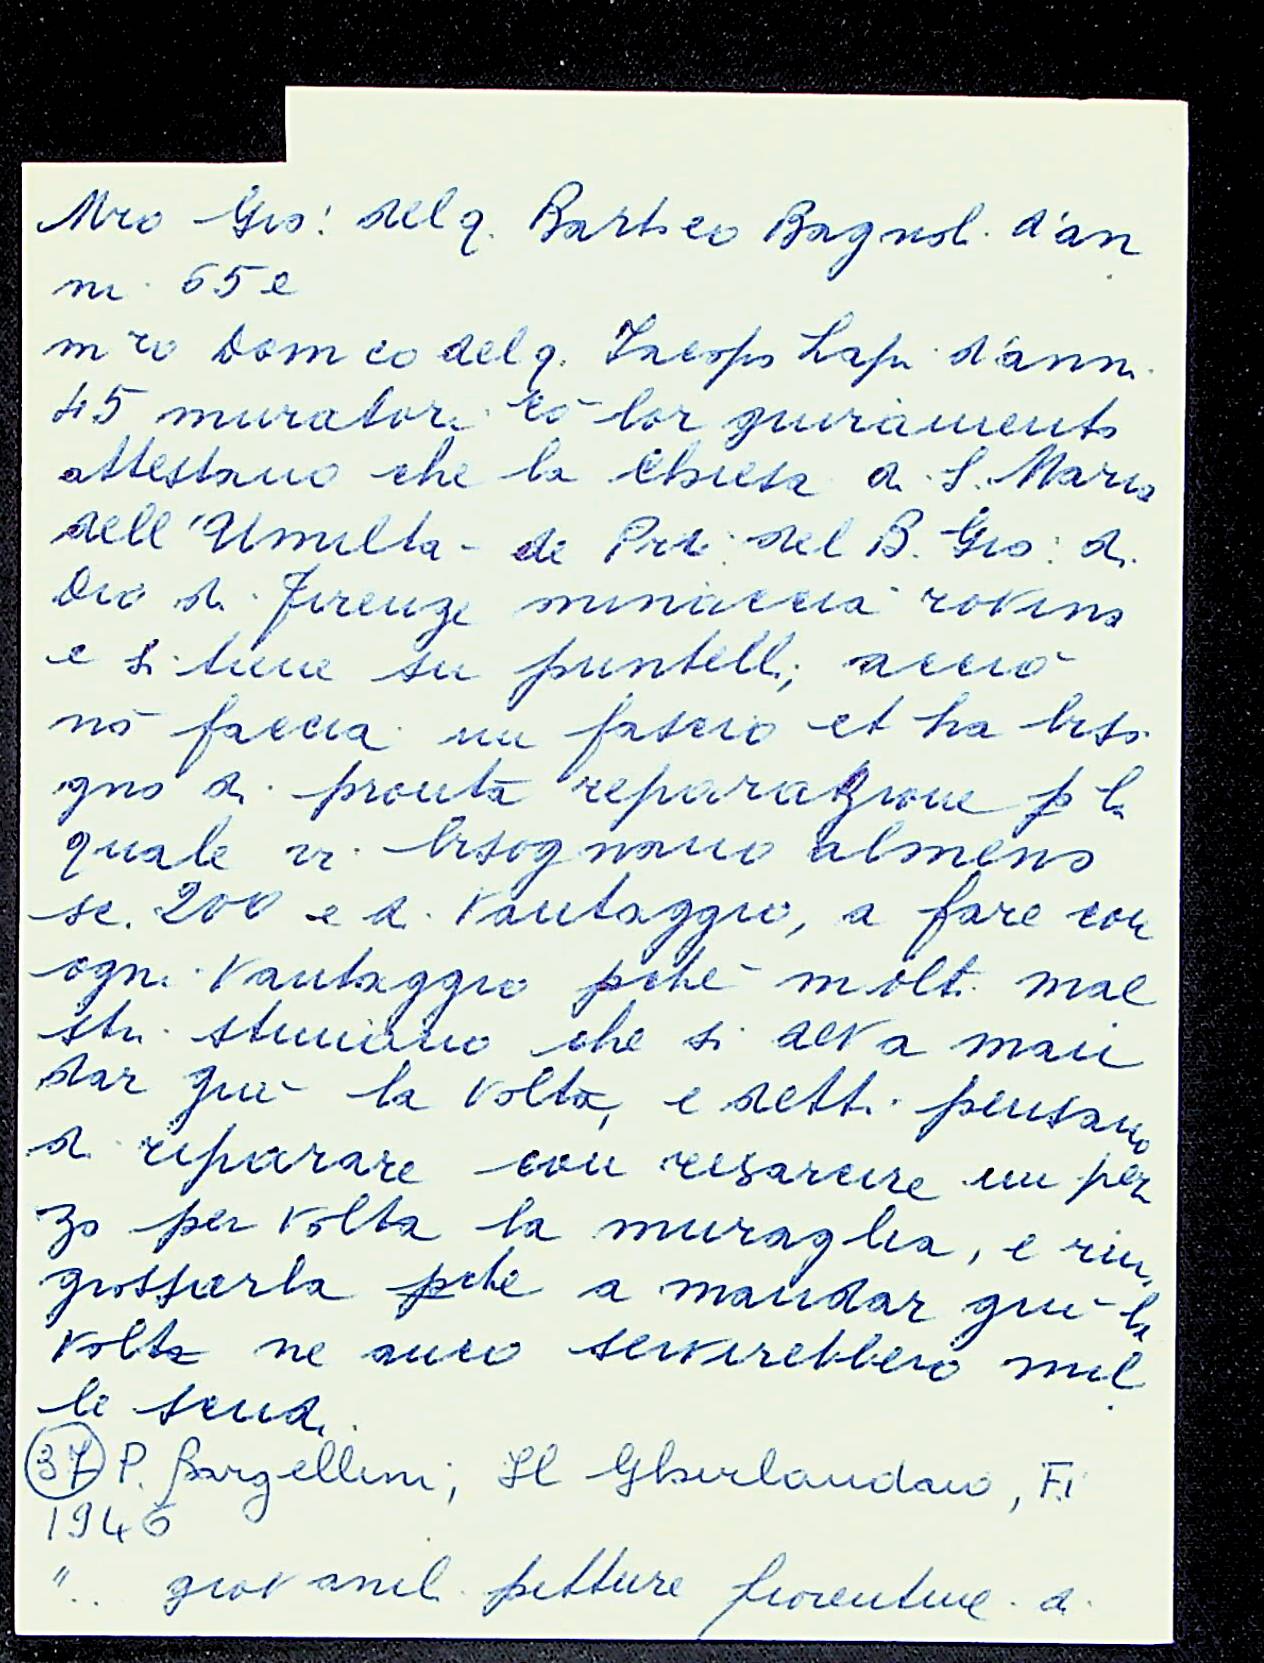 Mro Gio: del q. Bartoeo Bagnoli d'an
ni 65 e
mro Domco del q. Iacopo Lapi d'anni
45 muratori cō lor giuramento
attestano che la Chiesa di S. Maria
dell'Umiltà de Pri: del B. Gio: di
Dio di Firenze minaccia rovina
e si tiene su puntelli, acciò
nō faccia un fascio et ha biso
gno di pronta reparazione p la
quale vi bisognano almeno
sc. 200 e di vantaggio, a fare con
ogni vantaggio pchè molti mae
stri stimano che si deva man
dar giù la volta, e detti pensano
di riparare con risarcire un pez
zo per volta la muraglia, e rin
grossarla pchè a mandar giù la
volta ne anco servirebbero mil
le scudi.
(37) P. Bargellini, Il Ghirlandaio, Fi
1946
" .. giovanil. pitture fiorentine di